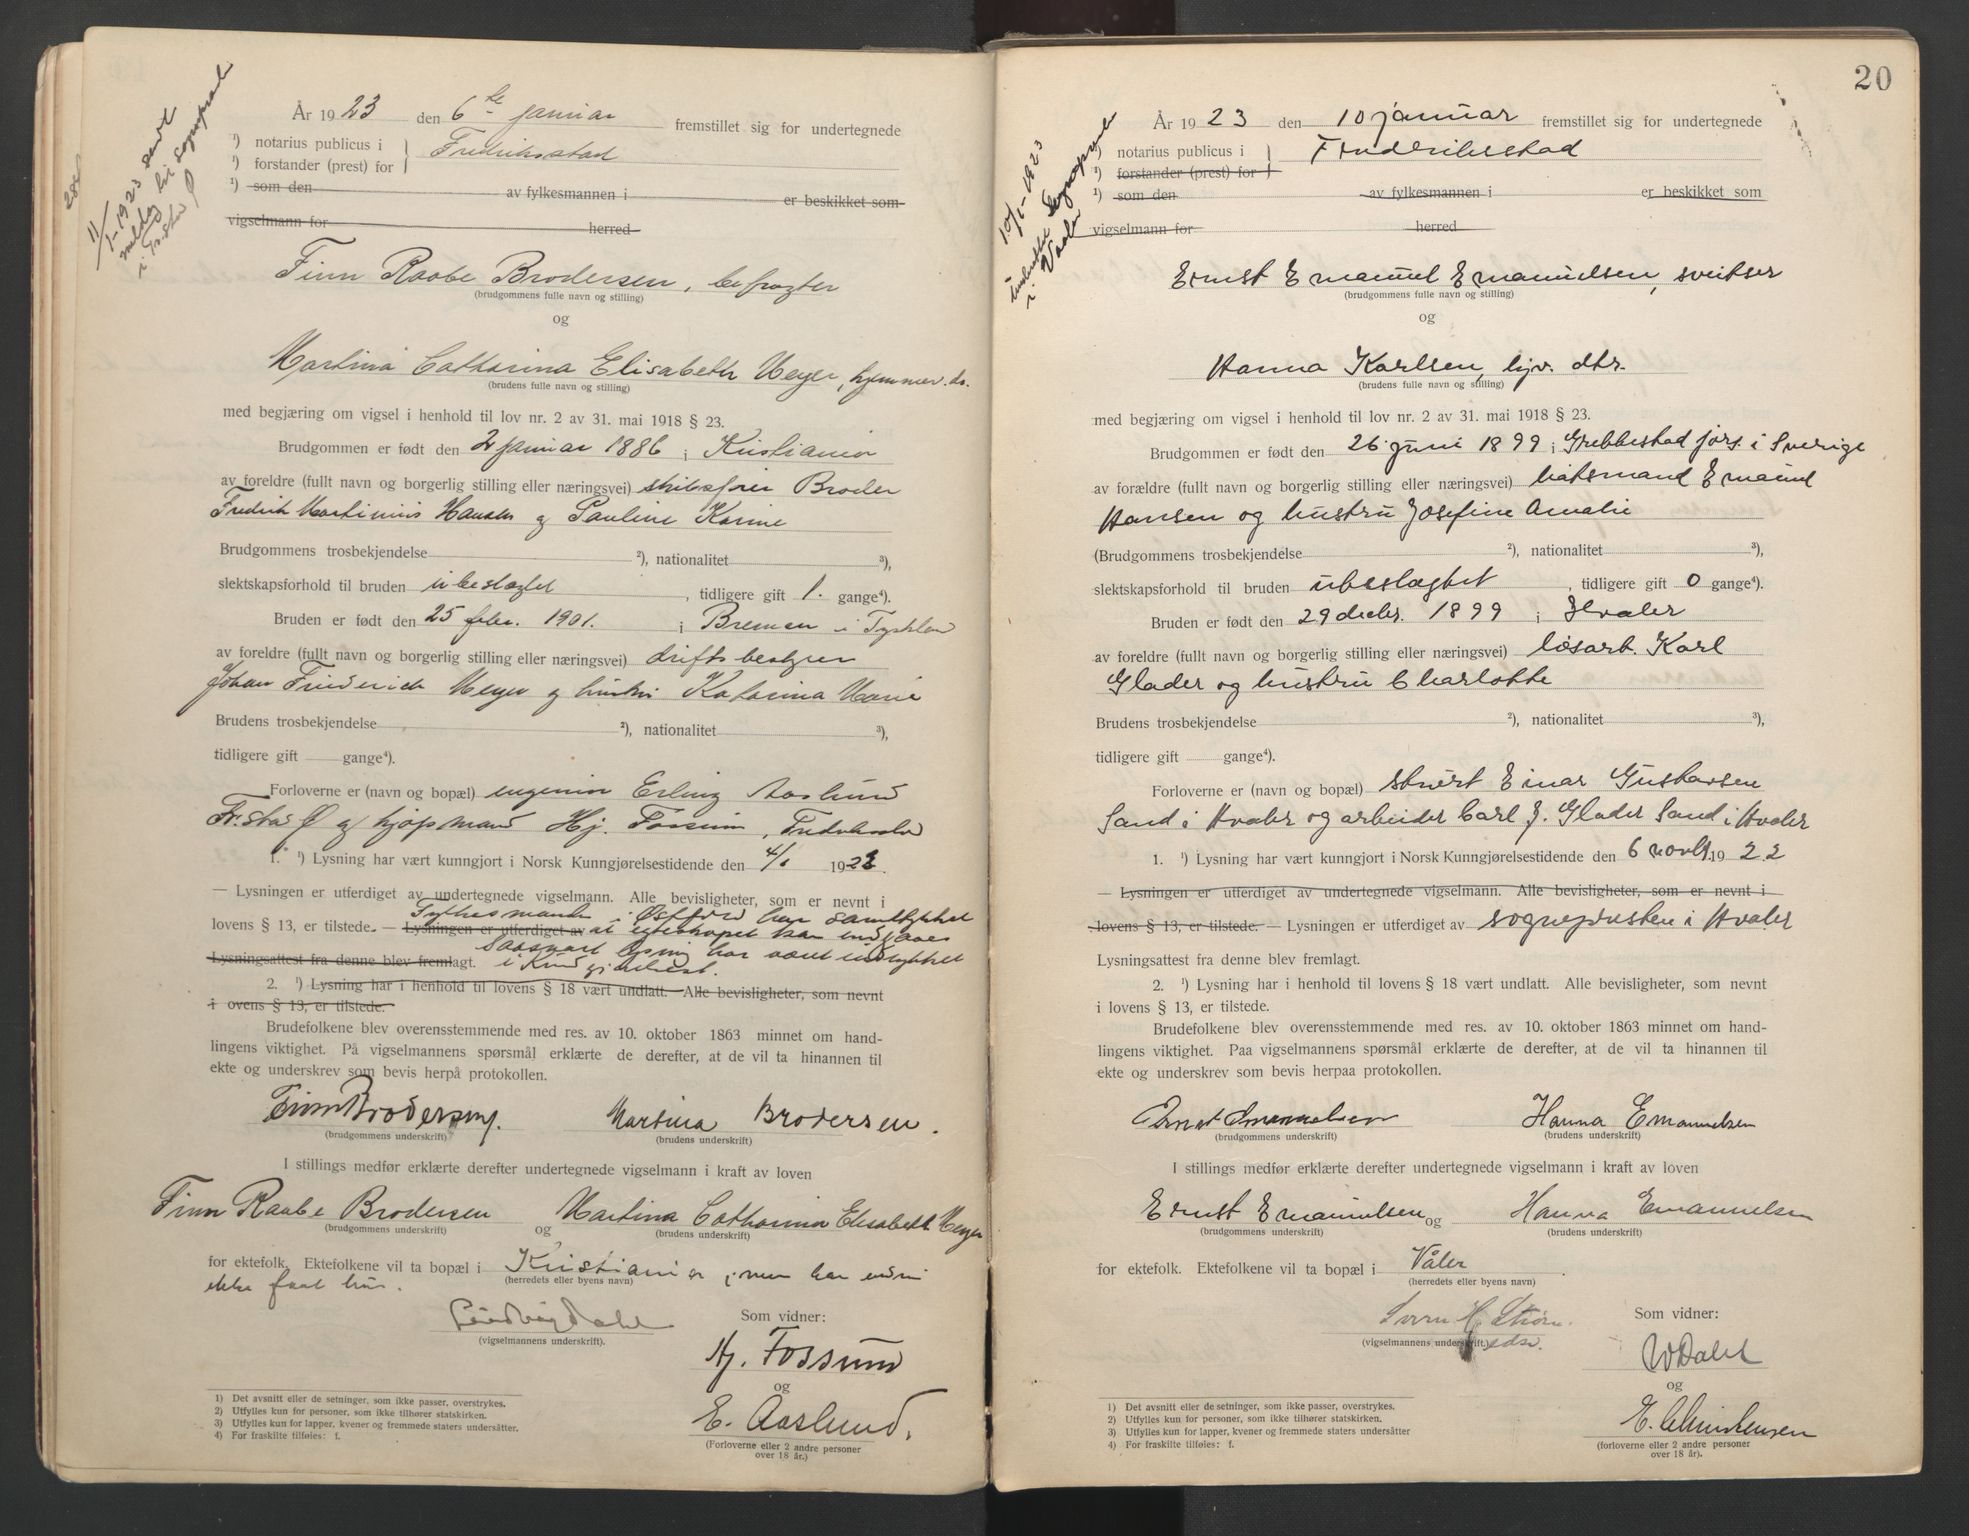 År 1923 den 6te januar fremstillet sig for undertegnede
¹) notarius publicus i } Fredriksstad
¹) forstander (prest) for
¹) som den av fylkesmannen i er beskikket som
vigselmann for herred
11/1-1923 sendt
melding til sogneprest
i Fr.stad
Finn Raabe Brodersen, befragter
(brudgommens fulle navn og stilling)
og
Martina Catharina Elisabeth Meyer, hjemmev. dr.
(brudens fulle navn og stilling)
med begjæring om vigsel i henhold til lov nr. 2 av 31. mai 1918 § 23.
Brudgommen er født den 2 januar 1886 i Kristiania
av foreldre (fullt navn og borgerlig stilling eller næringsvei) skibsfører Broder
Fredrik Martinius Hansen og Pauline Karine
Brudgommens trosbekjendelse ²), nationalitet ³),
slektskapsforhold til bruden ubeslegtet, tidligere gift 1. gange⁴).
Bruden er født den 25 febr. 1901. i Bremen i Tyskland
av foreldre (fullt navn og borgerlig stilling eller næringsvei) driftsbestyrer
Johan Friederich Meyer og hustru Katarina Marie
Brudens trosbekjendelse ²), nationalitet ³),
tidligere gift gange⁴).
Forloverne er (navn og bopæl) ingeniør Erling Aaslund
Fr.stad og kjøpmand Hj. Fossum, Fredriksstad
1. ¹) Lysning har vært kunngjort i Norsk Kunngjørelsestidende den 4/1 1923.
— Lysningen er utferdiget av undertegnede vigselmann. Alle bevisligheter, som er nevnt i
lovens § 13, er tilstede. — Lysningen er utferdiget av
Fylkesmanden i Østfold har samtykket
at egteskapet kan indgaaes
Lysningsattest fra denne blev fremlagt.
saasnart lysing har været indrykket
i Kundgjørelsest.
2. ¹) Lysning har i henhold til lovens § 18 vært undlatt. Alle bevisligheter, som nevnt
i ovens § 13, er tilstede.
Brudefolkene blev overensstemmende med res. av 10. oktober 1863 minnet om hand-
lingens viktighet. På vigselmannens spørsmål erklærte de derefter, at de vil ta hinannen til
ekte og underskrev som bevis herpå protokollen.
Finn Brodersen. Martina Brodersen.
(brudgommens underskrift) (brudens underskrift)
I stillings medfør erklærte derefter undertegnede vigselmann i kraft av loven
Finn Raabe Brodersen og Martina Catharina Elisabeth Meyer
(brudgommens underskrift) (brudens underskrift)
for ektefolk. Ektefolkene vil ta bopæl i Kristiania, men har endnu
(herredets eller byens navn)
ikke faat hus.
(vigselmannens underskrift).
Som vidner:
Hj. Fossum
og
E. Aaslund.
(Forloverne eller 2 andre personer
over 18 år.)
1) Det avsnitt eller de setninger, som ikke passer, overstrykes.
2) Utfylles kun for personer, som ikke tilhører statskirken.
3) Utfylles kun for lapper, kvener og fremmede staters undersåtter.
4) For fraskilte tilføies: f.
20
År 1923 den 10 januar fremstillet sig for undertegnede
¹) notarius publicus i } Fredriksstad
¹) forstander (prest) for
¹) som den av fylkesmannen i er beskikket som
vigselmann for herred
10/1-1923
underrettet sogneprest
i Vaaler
Ernst Emanuel Emanuelsen, sveitser
(brudgommens fulle navn og stilling)
og
Hanna Karlsen, hjv. dtr.
(brudens fulle navn og stilling)
med begjæring om vigsel i henhold til lov nr. 2 av 31. mai 1918 § 23.
Brudgommen er født den 26 juni 1899 i Grebbestad førs. i Sverige
av forældre (fullt navn og borgerlig stilling eller næringsvei) baatsmand Emanuel
Hansen og hustru Josefine Amalie
(Brudgommens trosbekjendelse ²), nationalitet ³),
slektskapsforhold til bruden ubeslagtet, tidligere gift 0 gange⁴).
Bruden er født den 29 decbr. 1899 i Hvaler
av foreldre (fullt navn og borgerlig stilling eller næringsvei) løsarb. Karl
Glader og hustru Charlotte
Brudens trosbekjendelse ²), nationalitet ³),
tidligere gift gange⁴).
Forloverne er (navn og bopæl) stuert Einar Gustavsen
Sand i Hvaler og arbeider Carl J. Glader Sand i Hvaler
1. ¹) Lysning har vært kunngjort i Norsk Kunngjørelsestidende den 6 novbr. 1922
— Lysningen er utferdiget av undertegnede vigselmann. Alle bevisligheter, som er nevnt i
lovens § 13, er tilstede. — Lysningen er utferdiget av sognepresten i Hvaler
Lysningsattest fra denne blev fremlagt.
2. ¹) Lysning har i henhold til lovens § 18 vært undlatt. Alle bevisligheter, som nevnt
i lovens § 13, er tilstede.
Brudefolkene blev overensstemmende med res. av 10. oktober 1863 minnet om hand-
lingens viktighet. Paa vigselmannens spørsmål erklærte de derefter, at de vil ta hinannen til
ekte og underskrev som bevis herpaa protokollen.
Ernst Emanuelsen Hanna Emanuelsen
(brudgommens underskrift) (brudens underskrift)
I stillings medfør erklærte derefter undertegnede vigselmann i kraft av loven
Ernst Emanuelsen og Hanna Emanuelsen
(brudgommens underskrift) (brudens underskrift)
for ektefolk. Ektefolkene vil ta bopæl i Våler
(herredets eller byens navn)
(vigselmannens underskrift) edsv.
Som vidner:
W Dahl
og
E. Christensen
(forloverne eller 2 andre personer
over 18 år).
1) Det avsnitt eller de setninger, som ikke passer, overstrykes.
2) Utfylles kun for personer, som ikke tilhører statskirken.
3) Utfylles kun for lapper, kvener og fremmede staters undersåtter
4) For fraskilte tilføies: f.